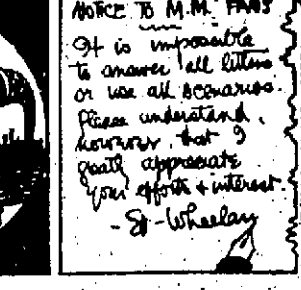 NOTICE TO M.M. FANS
It is impossible
to answer all letters
or use all scenarios.
Please understand,
however, that I
greatly appreciate
your efforts & interest.
- St - Wheelan